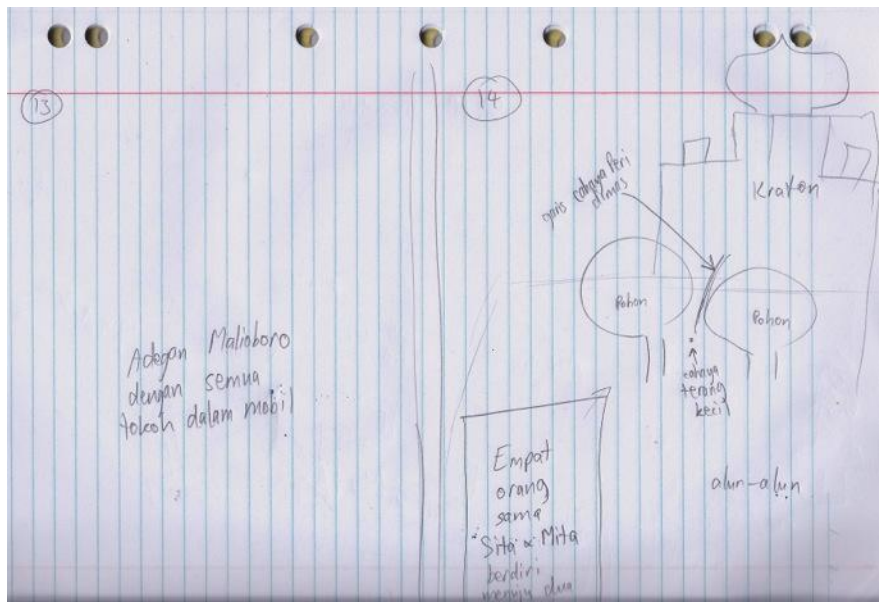 13
Adegan Malioboro
dengan semua
tokoh dalam mobil
14
Kraton
garis cahaya Peri
dimas
Pohon
Pohon
cahaya
terang
kecil
alun-alun
Empat
orang
sama
Sita & Mita
berdiri
menuju dua